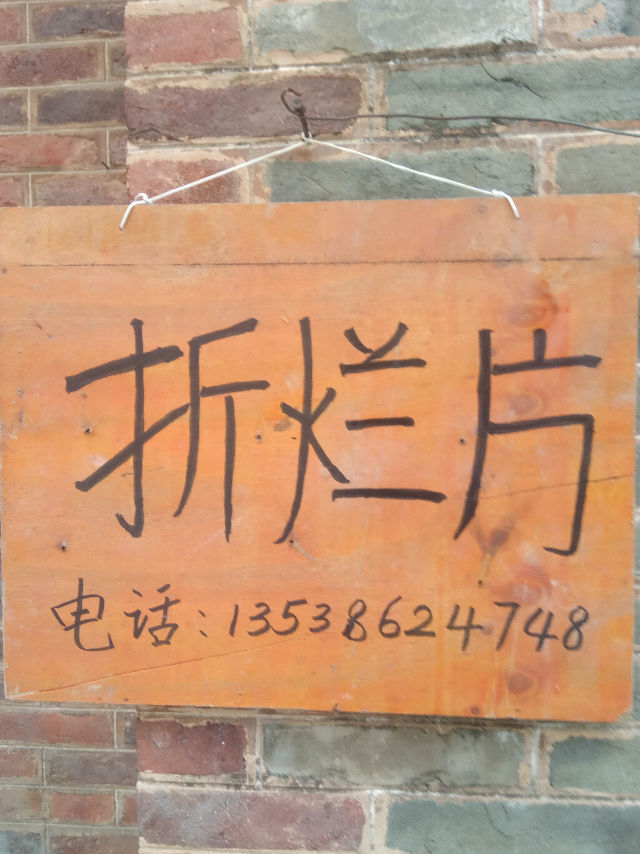 折烂片
电话:13538624748